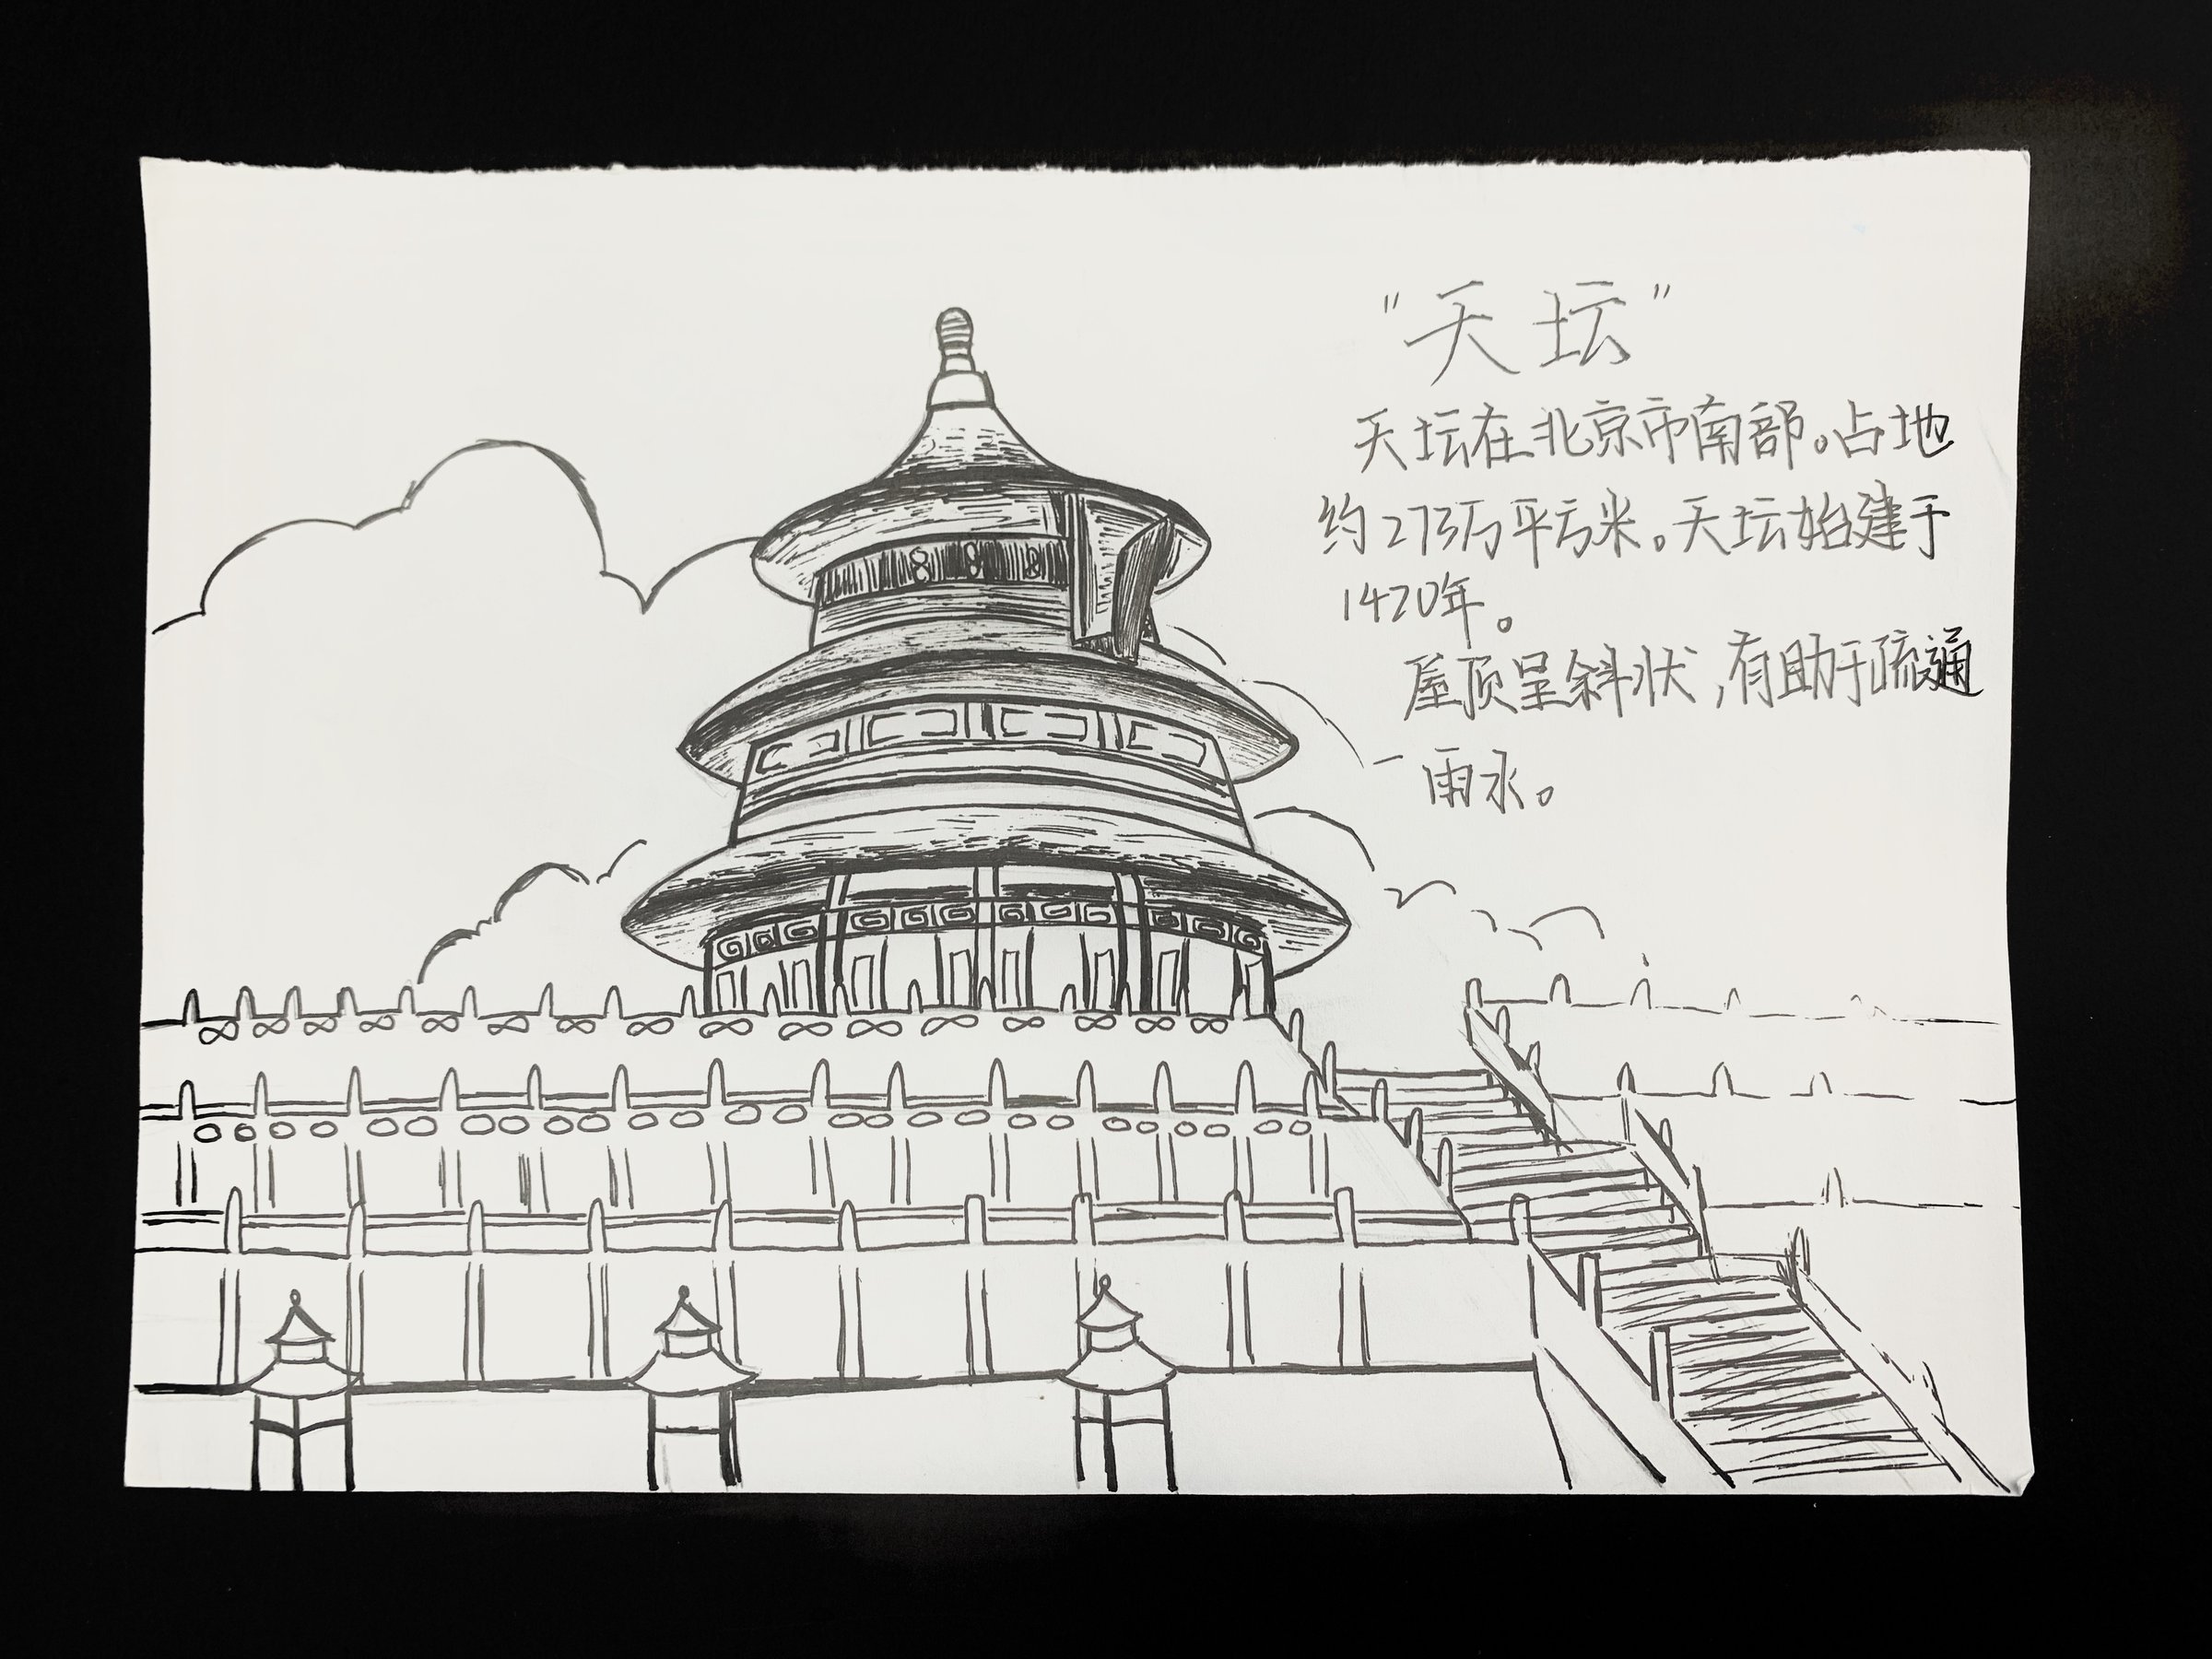 "天坛"
天坛在北京市南部。占地
约273万平方米。天坛始建于
1420年。
屋顶呈斜状,有助于疏通
雨水。